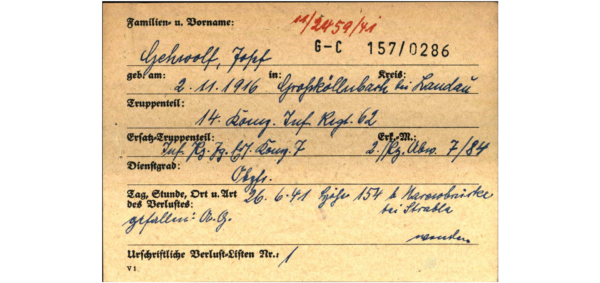 Familien- u. Vorname:
11/2459/41
G-C 157/0286
Gehwolf, Josef
geb. am: in: Kreis:
2.11.1916 Großköllnbach bei Landau
Truppenteil:
14. Komp. Inf. Regt. 62
Ersatz-Truppenteil: Erk.-M.:
Inf. Pz. Jg. Ers. Komp. 7 2./Pz. Abw. 7/84
Dienstgrad:
Obgfr.
Tag, Stunde, Ort u. Art des Verlustes:
26.6.41 Höhe 154 b Narewbrücke
bei Strabla
gefallen: A.G.
Urschriftliche Verlust-Listen Nr.: 1
V 1